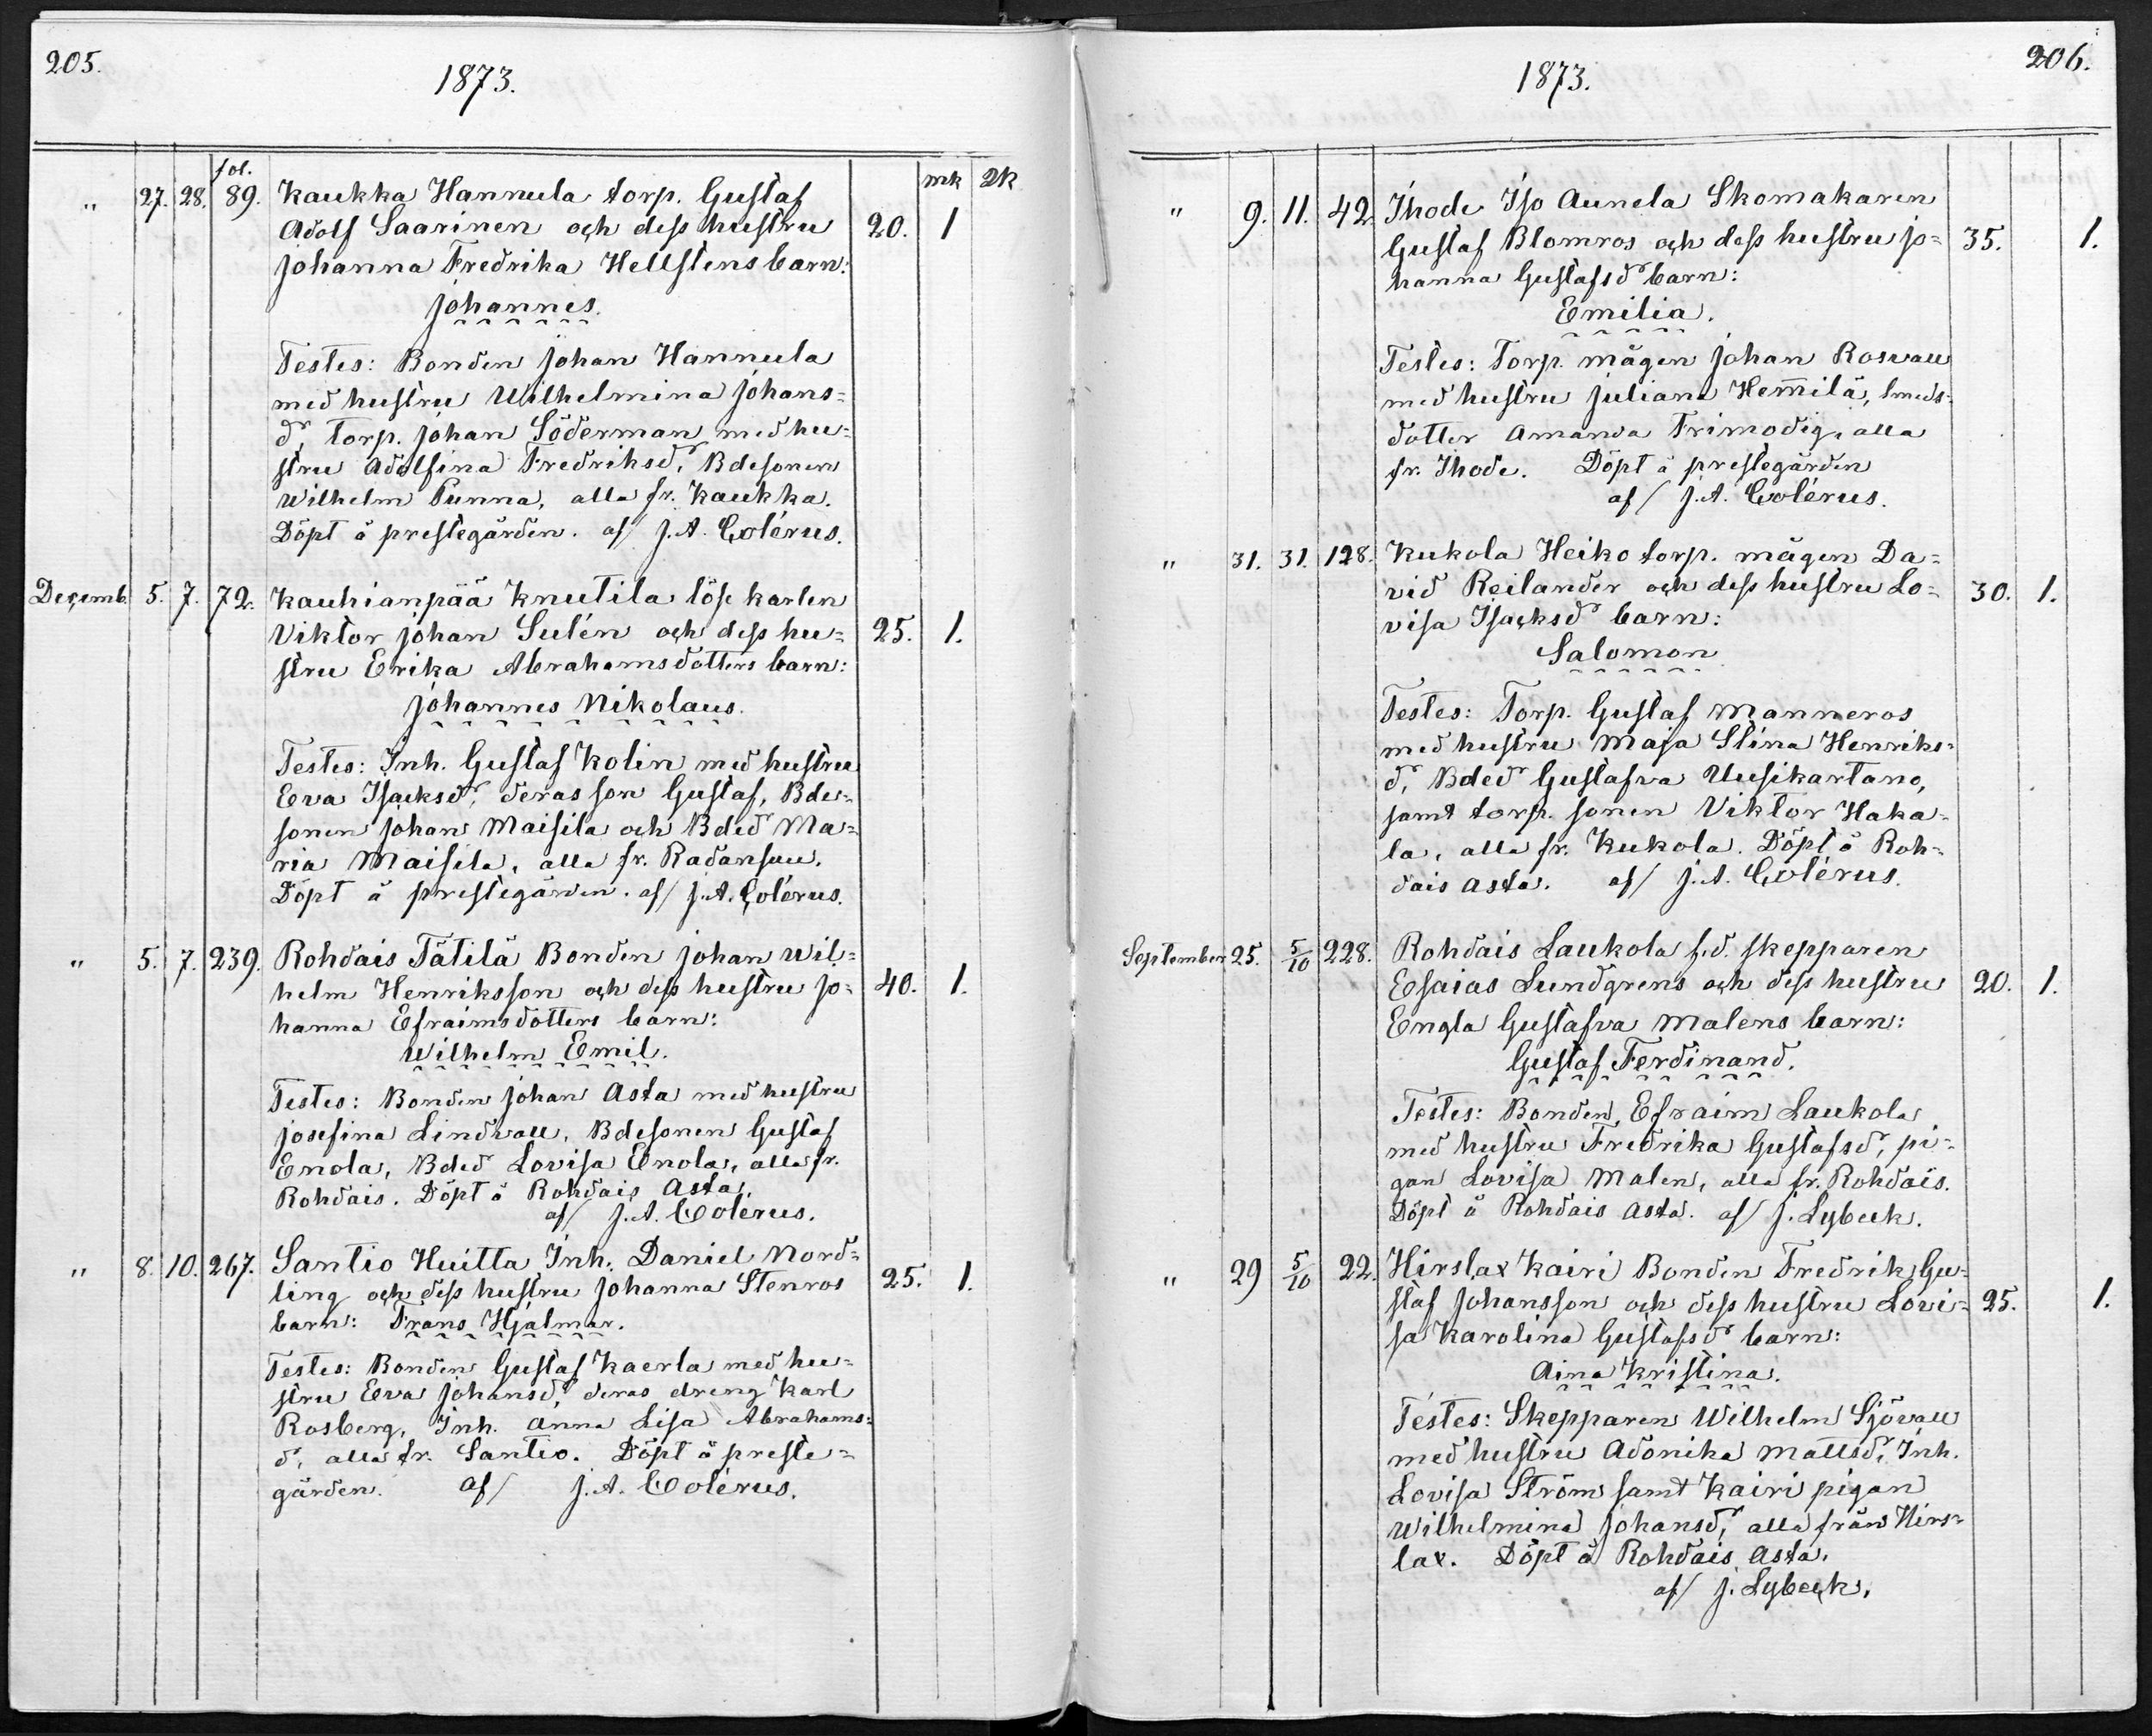 205.
1873.
fol. mk qk
" 27. 28. 89. Kaukka Hannula torp. Gustaf
Adolf Saarinen och dess hustru 20. 1
Johanna Fredrika Hellstens barn:
Johannes.
Testes: Bonden Johan Hannula
med hustru Wilhelmina Johans=
dr, torp. Johan Söderman med hu=
stru Adolfina Fredriksdr, Bdesonen
Wilhelm Punna, alla fr. Kaukka.
Döpt å prestegården. af/ J. A. Colérus.
Decemb. 5. 7. 72. Kauhianpää Knutila löse karlen
Viktor Johan Sulén och dess hu= 25. 1.
stru Erika Abrahamsdotters barn:
Johannes Nikolaus.
Testes: Inh. Gustaf Kolin med hustru
Eva Isacksdr, deras son Gustaf, Bde=
sonen Johan Maisila och Bdedr Ma=
ria Maisila, alla fr. Radansuu.
Döpt å prestegården. af/ J. A. Colérus.
" 5. 7. 239. Rohdais Tätilä Bonden Johan Wil=
helm Henriksson och dess hustru Jo= 40. 1.
hanna Efraimsdotters barn:
Wilhelm Emil.
Testes: Bonden Johan Asta med hustru
Josefina Lindvall, Bdesonen Gustaf
Enola, Bdedr Lovisa Enola, alla fr.
Rohdais. Döpt å Rohdais Asta.
af/ J. A. Colérus.
" 8. 10. 267. Santio Huitta Inh. Daniel Nord=
ling och dess hustru Johanna Stenros 25. 1.
barn: Frans Hjalmar.
Testes: Bonden Gustaf Kaerla med hu=
stru Eva Johansdr, deras dreng Karl
Rosberg, Inh. Anna Lisa Abrahams=
dr, alla fr. Santio. Döpt å preste=
gården. af/ J. A. Colérus.
206.
1873.
" 9. 11. 42. Ihode Iso Aunela Skomakaren
Gustaf Blomros och dess hustru Jo= 35. 1.
hanna Gustafsdr barn:
Emilia.
Testes: Torp. mågen Johan Rosvall
med hustru Juliana Hemilä, smeds=
dotter Amanda Frimodig, alla
fr. Ihode. Döpt å prestegården
af/ J. A. Colérus.
" 31. 31. 128. Kukola Heiko torp. mågen Da=
vid Reilander och dess hustru Lo= 30. 1.
visa Isacksdr barn:
Salomon
Testes: Torp. Gustaf Manneros
med hustru Maja Stina Henriks=
dr, Bdedr Gustafva Uusikartano,
samt torp. sonen Viktor Haka=
la, alla fr. Kukola. Döpt å Roh=
dais Asta. af/ J. A. Colérus.
September 25. 5/10 228. Rohdais Laukola f.d. skepparen
Esaias Lundgrens och dess hustru 20. 1.
Engla Gustafva Malens barn:
Gustaf Ferdinand.
Testes: Bonden Efraim Laukola
med hustru Fredrika Gustafsdr, pi=
gan Lovisa Malen, alla fr. Rohdais.
Döpt å Rohdais Asta. af/ J. Lybeck.
" 29 5/10 22. Hirslax Kairi Bonden Fredrik Gu=
staf Johansson och dess hustru Lovi= 25. 1.
sa Karolina Gustafsdr barn:
Aina Kristina.
Testes: Skepparen Wilhelm Sjövall
med hustru Adonika Mattsdr, Inh.
Lovisa Ström samt Kairi pigan
Wilhelmina Johansdr, alla från Hirs=
lax. Döpt å Rohdais Asta.
af/ J. Lybeck.